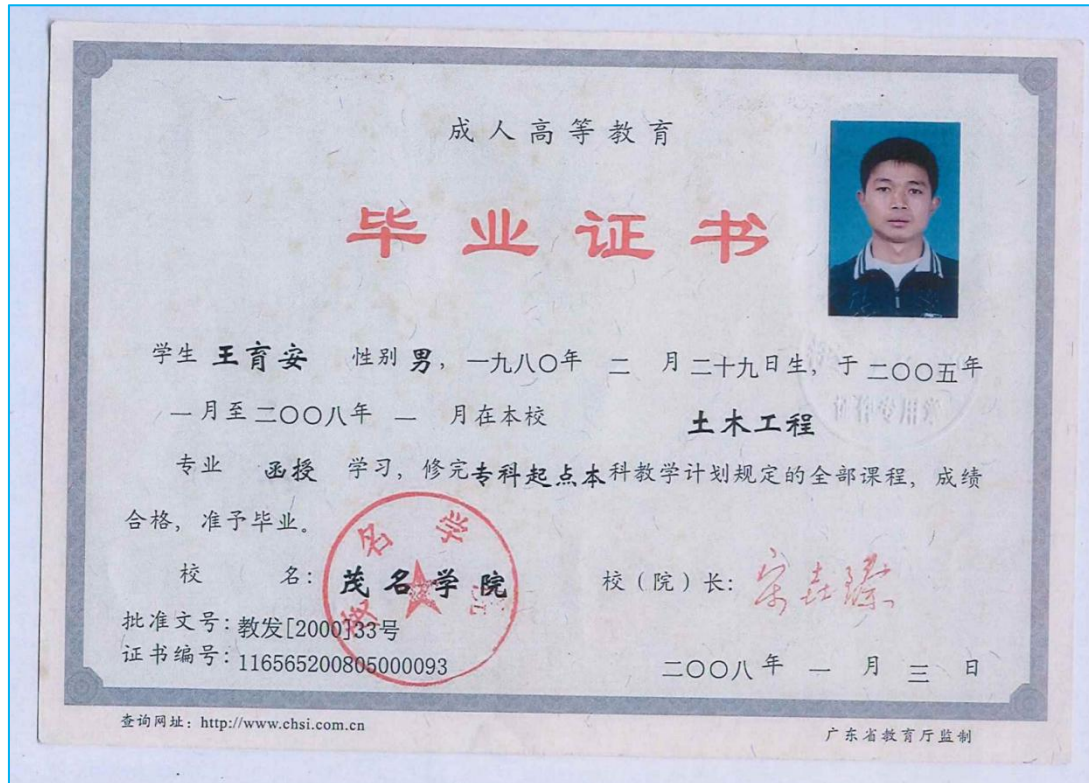 成人高等教育
毕业证书
学生 王育安 性别 男，一九八〇年 二 月 二十九日生，于 二〇〇五年
一 月至 二〇〇八年 一 月在本校 土木工程
专业 函授 学习，修完专科起点本科教学计划规定的全部课程，成绩
合格，准予毕业。
校 名：茂名学院 校（院）长：
茂名学院
批准文号：教发[2000]33号
证书编号：116565200805000093
二〇〇八 年 一 月 三 日
查询网址：http://www.chsi.com.cn 广东省教育厅监制